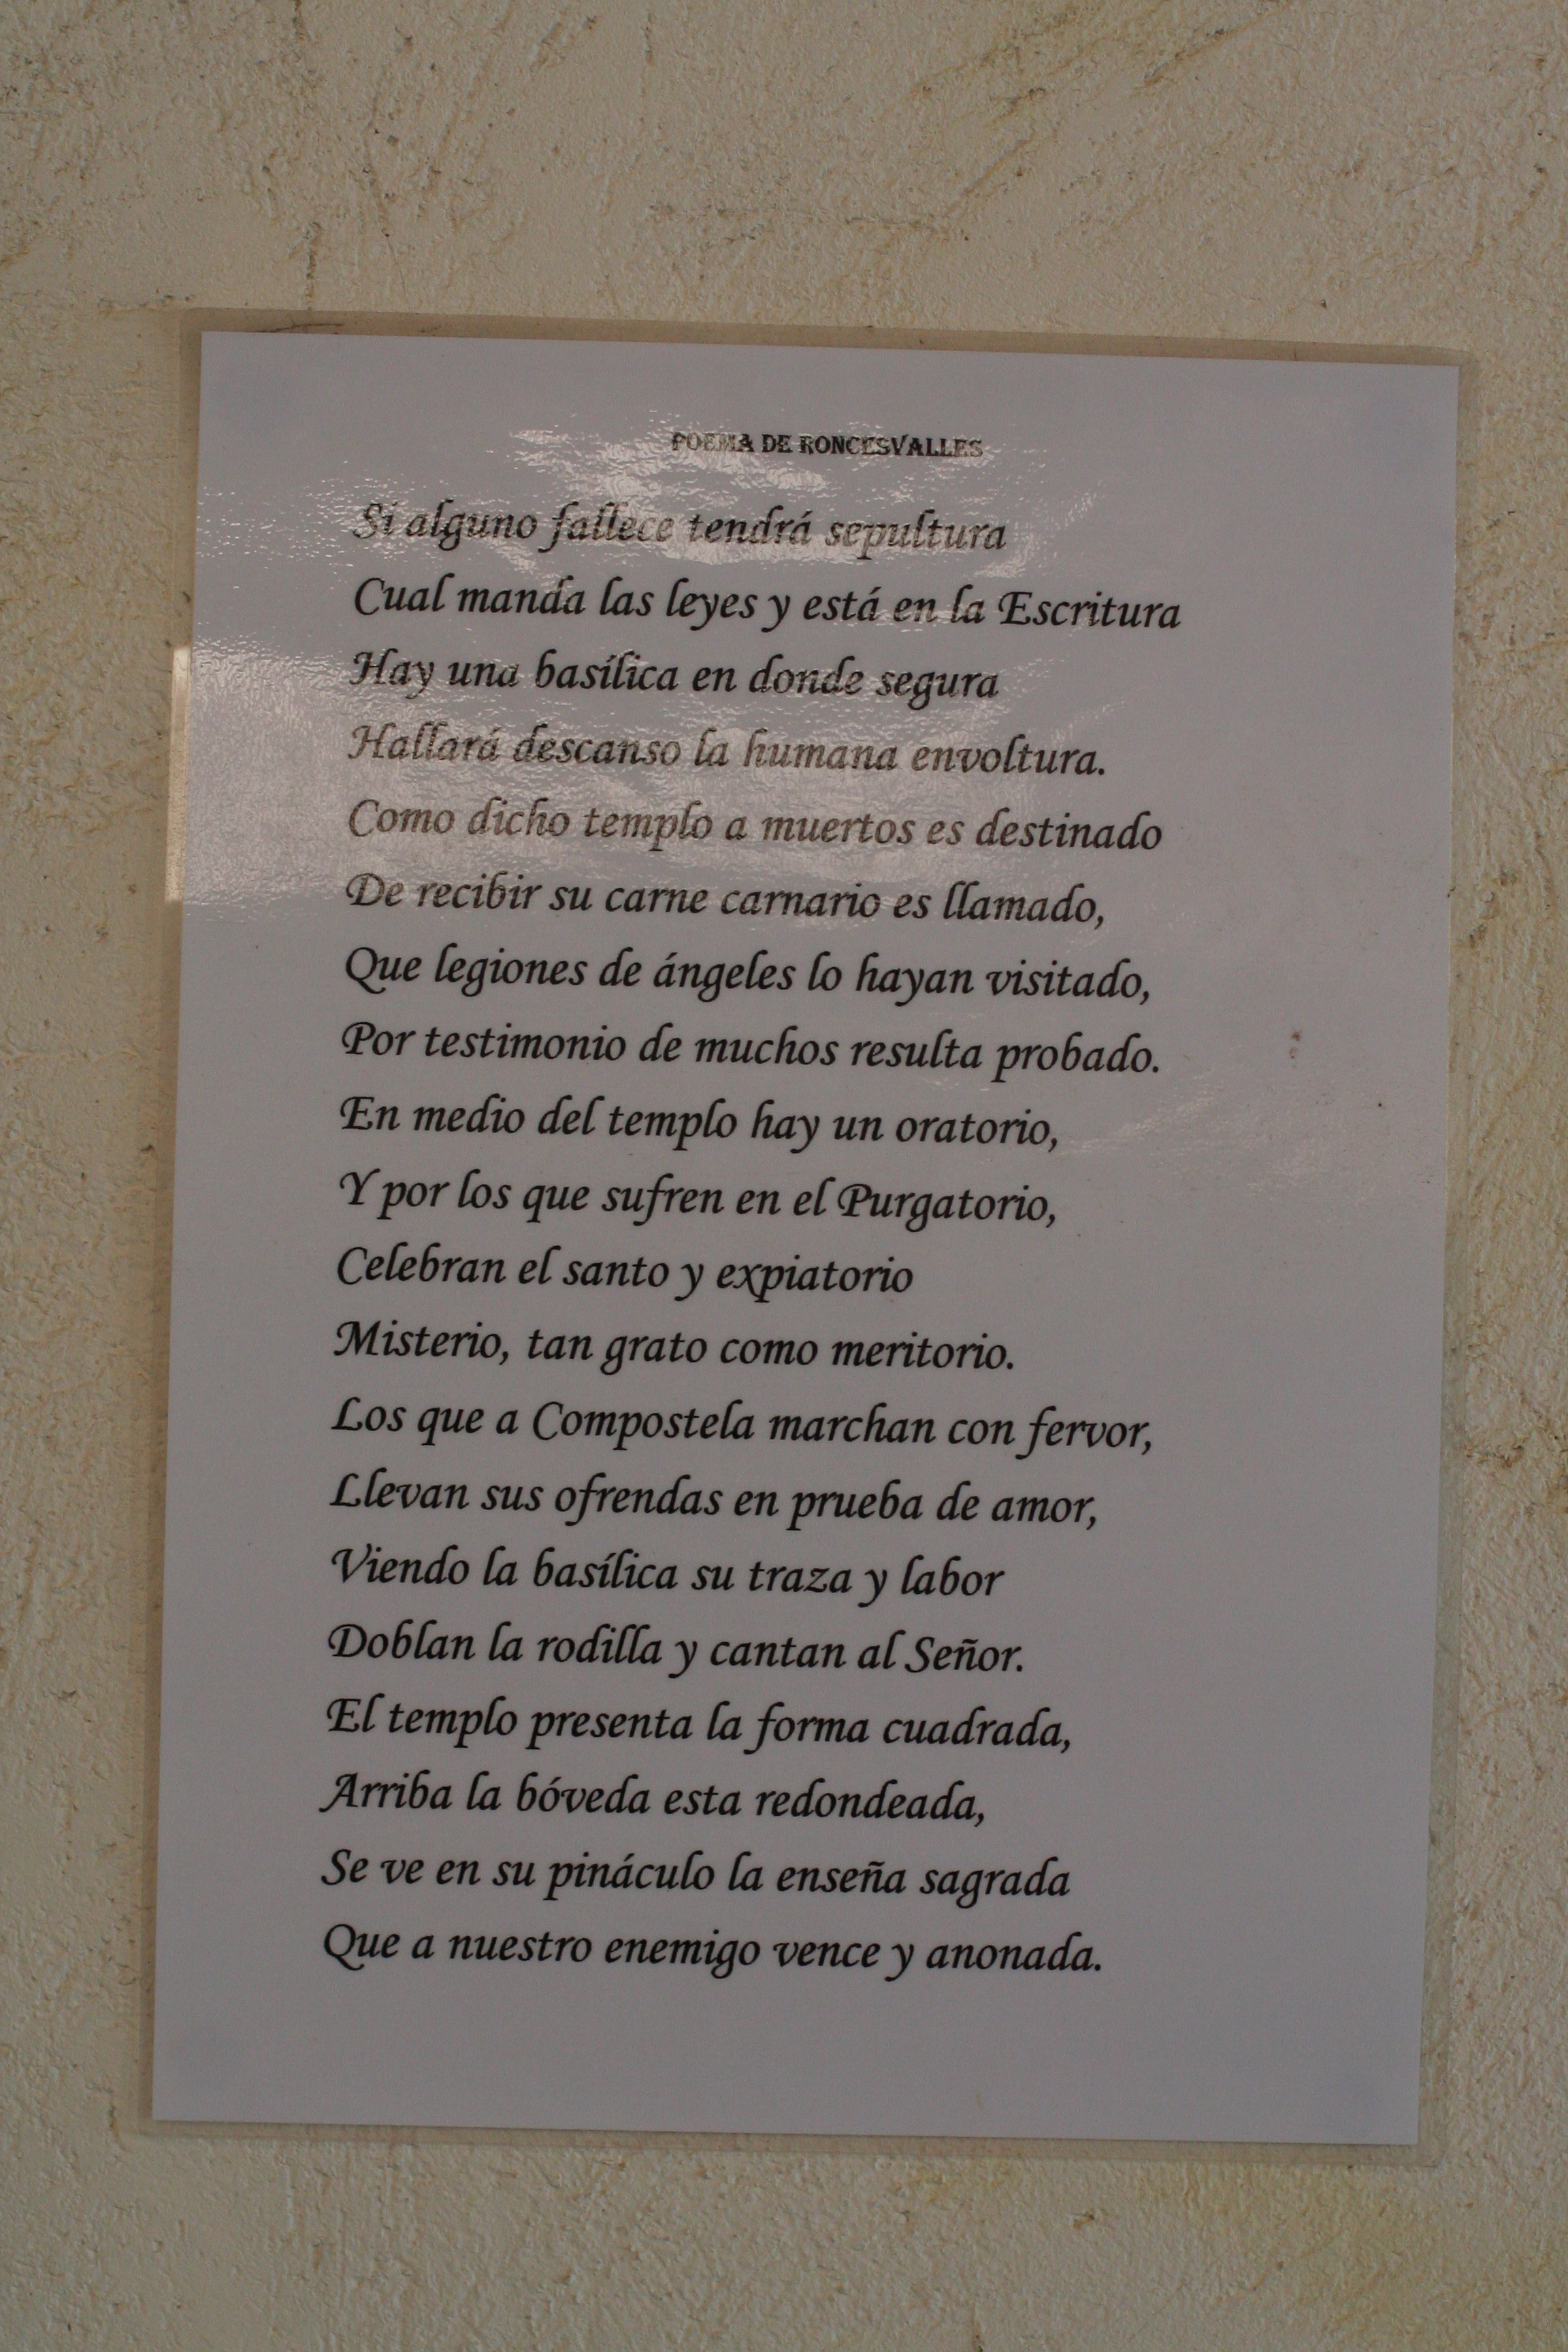 POEMA DE RONCESVALLES
Si alguno fallece tendrá sepultura
Cual manda las leyes y está en la Escritura
Hay una basílica en donde segura
Hallará descanso la humana envoltura.
Como dicho templo a muertos es destinado
De recibir su carne carnario es llamado,
Que legiones de ángeles lo hayan visitado,
Por testimonio de muchos resulta probado.
En medio del templo hay un oratorio,
Y por los que sufren en el Purgatorio,
Celebran el santo y expiatorio
Misterio, tan grato como meritorio.
Los que a Compostela marchan con fervor,
Llevan sus ofrendas en prueba de amor,
Viendo la basílica su traza y labor
Doblan la rodilla y cantan al Señor.
El templo presenta la forma cuadrada,
Arriba la bóveda esta redondeada,
Se ve en su pináculo la enseña sagrada
Que a nuestro enemigo vence y anonada.